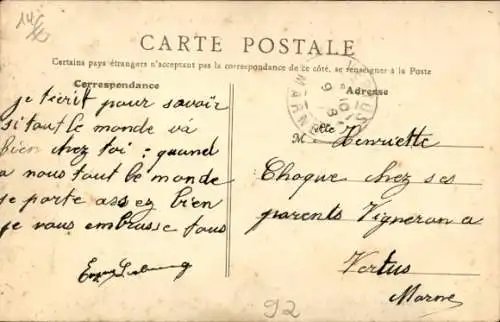 CARTE POSTALE
Certains pays étrangers n'acceptant pas la correspondance de ce côté, se renseigner à la Poste
Correspondance
je t'ecrit pour savoir
si tout le monde vá
bien chez toi : quand
a nous tout le monde
se porte assez bien
je vous embrasse tous
Adresse
Mlle Henriette
Choque chez ses
parents Vigneron a
Vertus
Marne
92